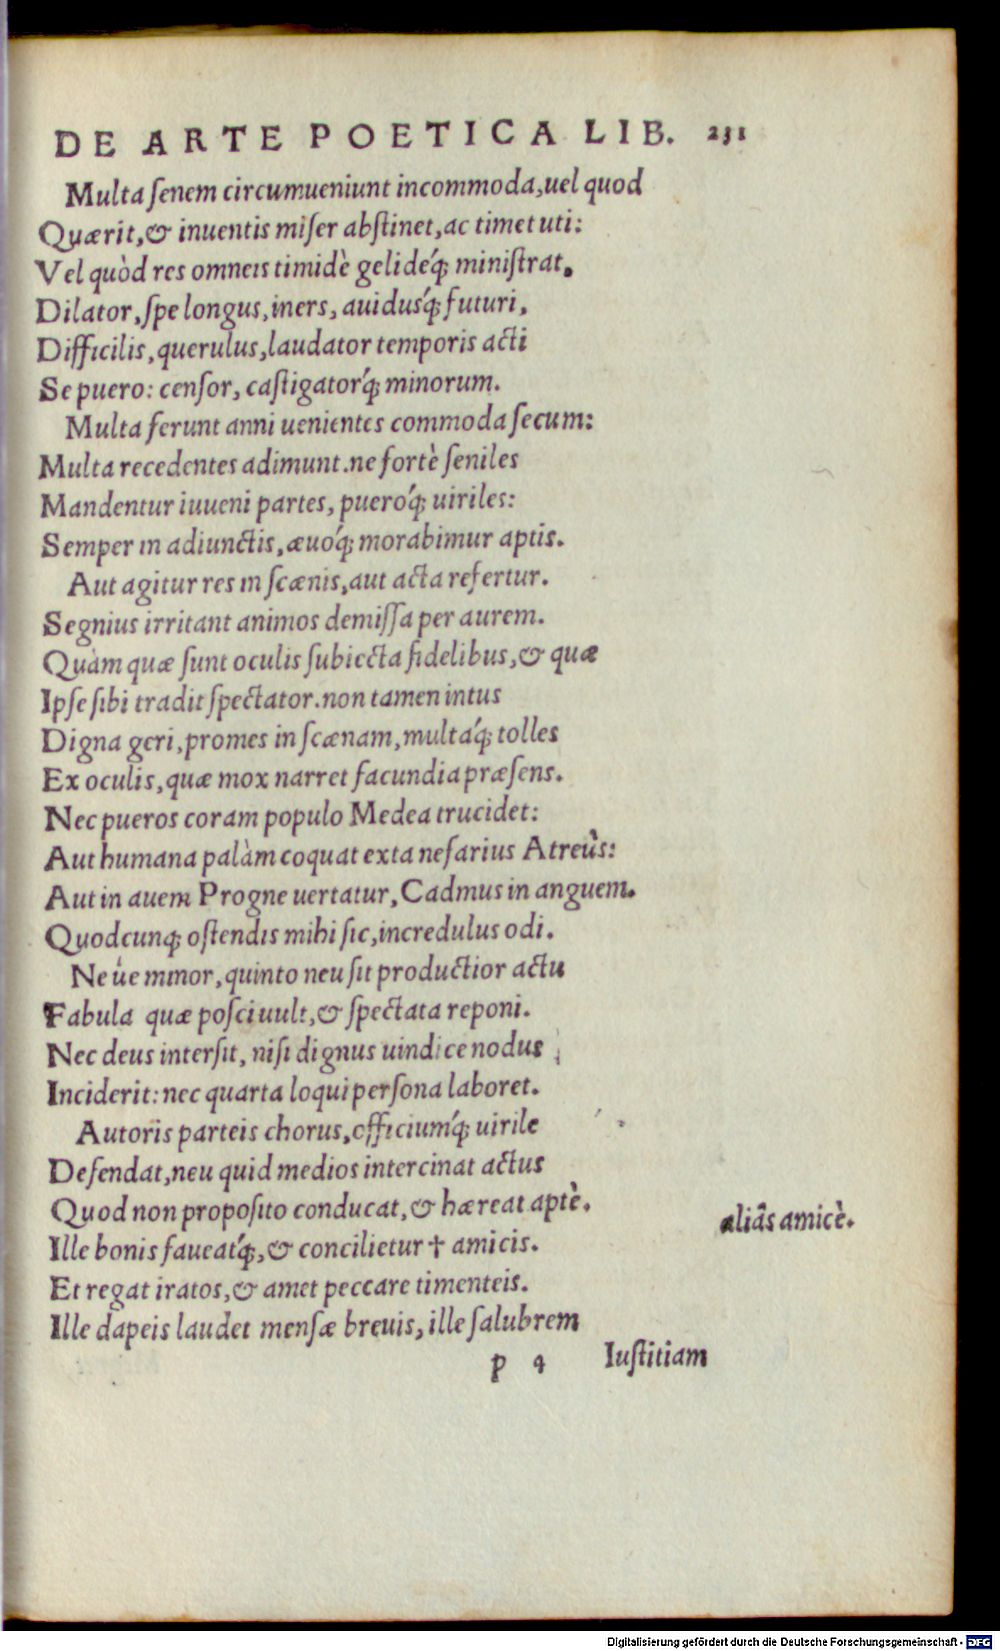 DE ARTE POETICA LIB. 231
Multa ſenem circumueniunt incommoda, uel quod
Quærit, & inuentis miſer abſtinet, ac timet uti:
Vel quòd res omneis timidè gelidéq; miniſtrat.
Dilator, ſpe longus, iners, auidusq́; futuri,
Difficilis, querulus, laudator temporis acti
Se puero: cenſor, caſtigatorq́; minorum.
Multa ferunt anni uenientes commoda ſecum:
Multa recedentes adimunt. ne fortè ſeniles
Mandentur iuueni partes, pueroq́; uiriles:
Semper in adiunctis, æuoq́; morabimur aptis.
Aut agitur res in ſcænis, aut acta refertur.
Segnius irritant animos demiſſa per aurem.
Quàm quæ ſunt oculis ſubiecta fidelibus, & quæ
Ipſe ſibi tradit ſpectator. non tamen intus
Digna geri, promes in ſcænam, multaq́; tolles
Ex oculis, quæ mox narret facundia præſens.
Nec pueros coram populo Medea trucidet:
Aut humana palàm coquat exta nefarius Atreûs:
Aut in auem Progne uertatur, Cadmus in anguem.
Quodcunq; oſtendis mihi ſic, incredulus odi.
Ne úe minor, quinto neu ſit productior actu
Fabula quæ poſci uult, & ſpectata reponi.
Nec deus interſit, niſi dignus uindice nodus
Inciderit: nec quarta loqui perſona laboret.
Autoris parteis chorus, officiumq́; uirile
Defendat, neu quid medios intercinat actus
Quod non propoſito conducat, & hæreat aptè.
Ille bonis faueatq́;, & concilietur † amicis.
aliâs amicè.
Et regat iratos, & amet peccare timenteis.
Ille dapeis laudet menſæ breuis, ille ſalubrem
p 4 Iuſtitiam
Digitalisierung gefördert durch die Deutsche Forschungsgemeinschaft - DFG